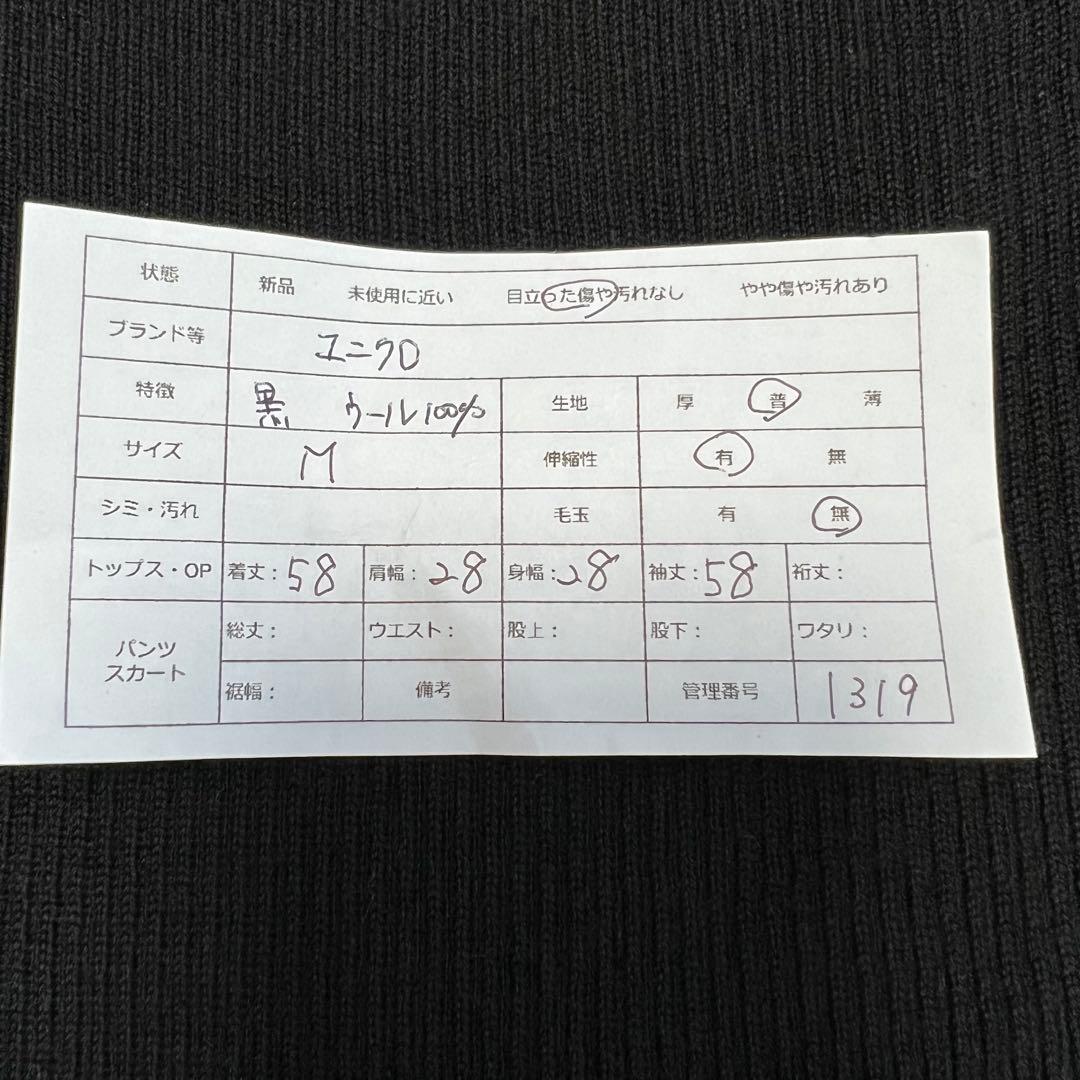 状態 新品 未使用に近い 目立った傷や汚れなし やや傷や汚れあり
ブランド等 ユニクロ
特徴 黒 ウール100% 生地 厚 普 薄
サイズ M 伸縮性 有 無
シミ・汚れ 毛玉 有 無
トップス・OP 着丈：58 肩幅：28 身幅：28 袖丈：58 裄丈：
パンツ 総丈： ウエスト： 股上： 股下： ワタリ：
スカート 裾幅： 備考 管理番号 1319